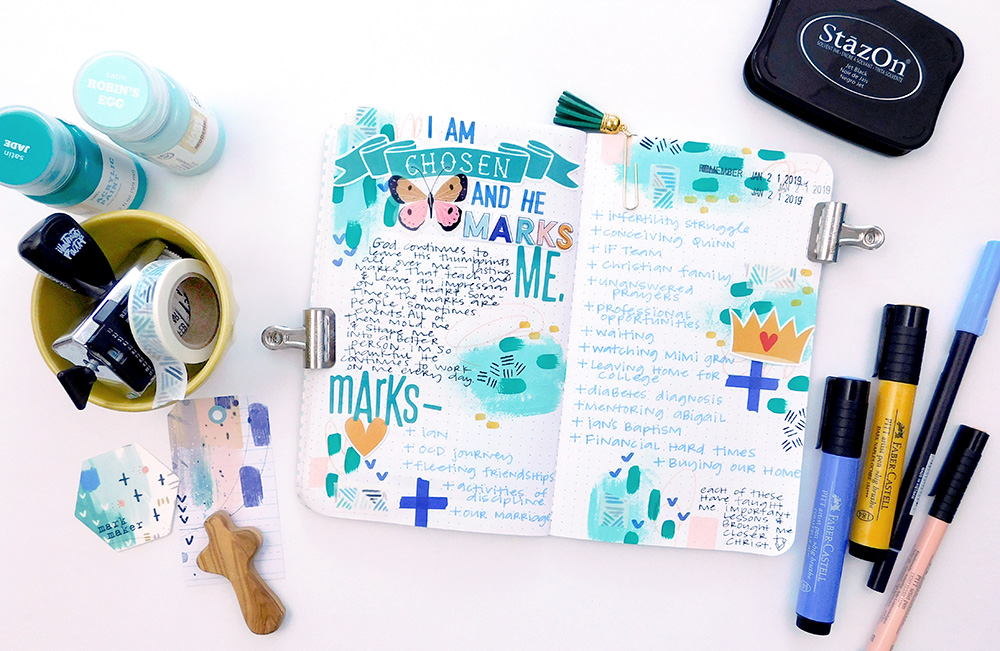 satin
ROBIN'S
EGG
satin
JADE
ACRYLIC
PAINT
StāzOn
SOLVENT INK • ENCRE À SOLVANT • TINTA SOLVENTE
Jet Black
Noir de Jais
Negro Jet
I AM
CHOSEN
AND HE
MARKS
ME.
God continues to
leave His thumbprints
all over me — lasting
marks that teach me
or leave an impression
on my heart. Some-
times the marks are
people, sometimes
events. All of
them mold me
& shape me
into a better
person. I'm so
thankful He
continues to work
on me every day.
MARKS—
+ Ian
+ OCD journey
+ fleeting friendships
+ activities of
discipline
+ our marriage
REMEMBER JAN 21 2019
JAN 21 2019
+ infertility struggle
+ conceiving Quinn
+ IF Team
+ Christian family
+ unanswered
prayers
+ professional
opportunities
+ waiting
+ watching Mimi grow
+ Leaving Home for
College
+ diabetes diagnosis
+ Mentoring Abigail
+ Ian's Baptism
+ Financial Hard times
+ Buying our Home
each of these
have taught
me important
lessons &
brought me
closer to
Christ.
mark
maker
FABER-CASTELL
PITT artist pen
FABER-CASTELL
PITT artist pen